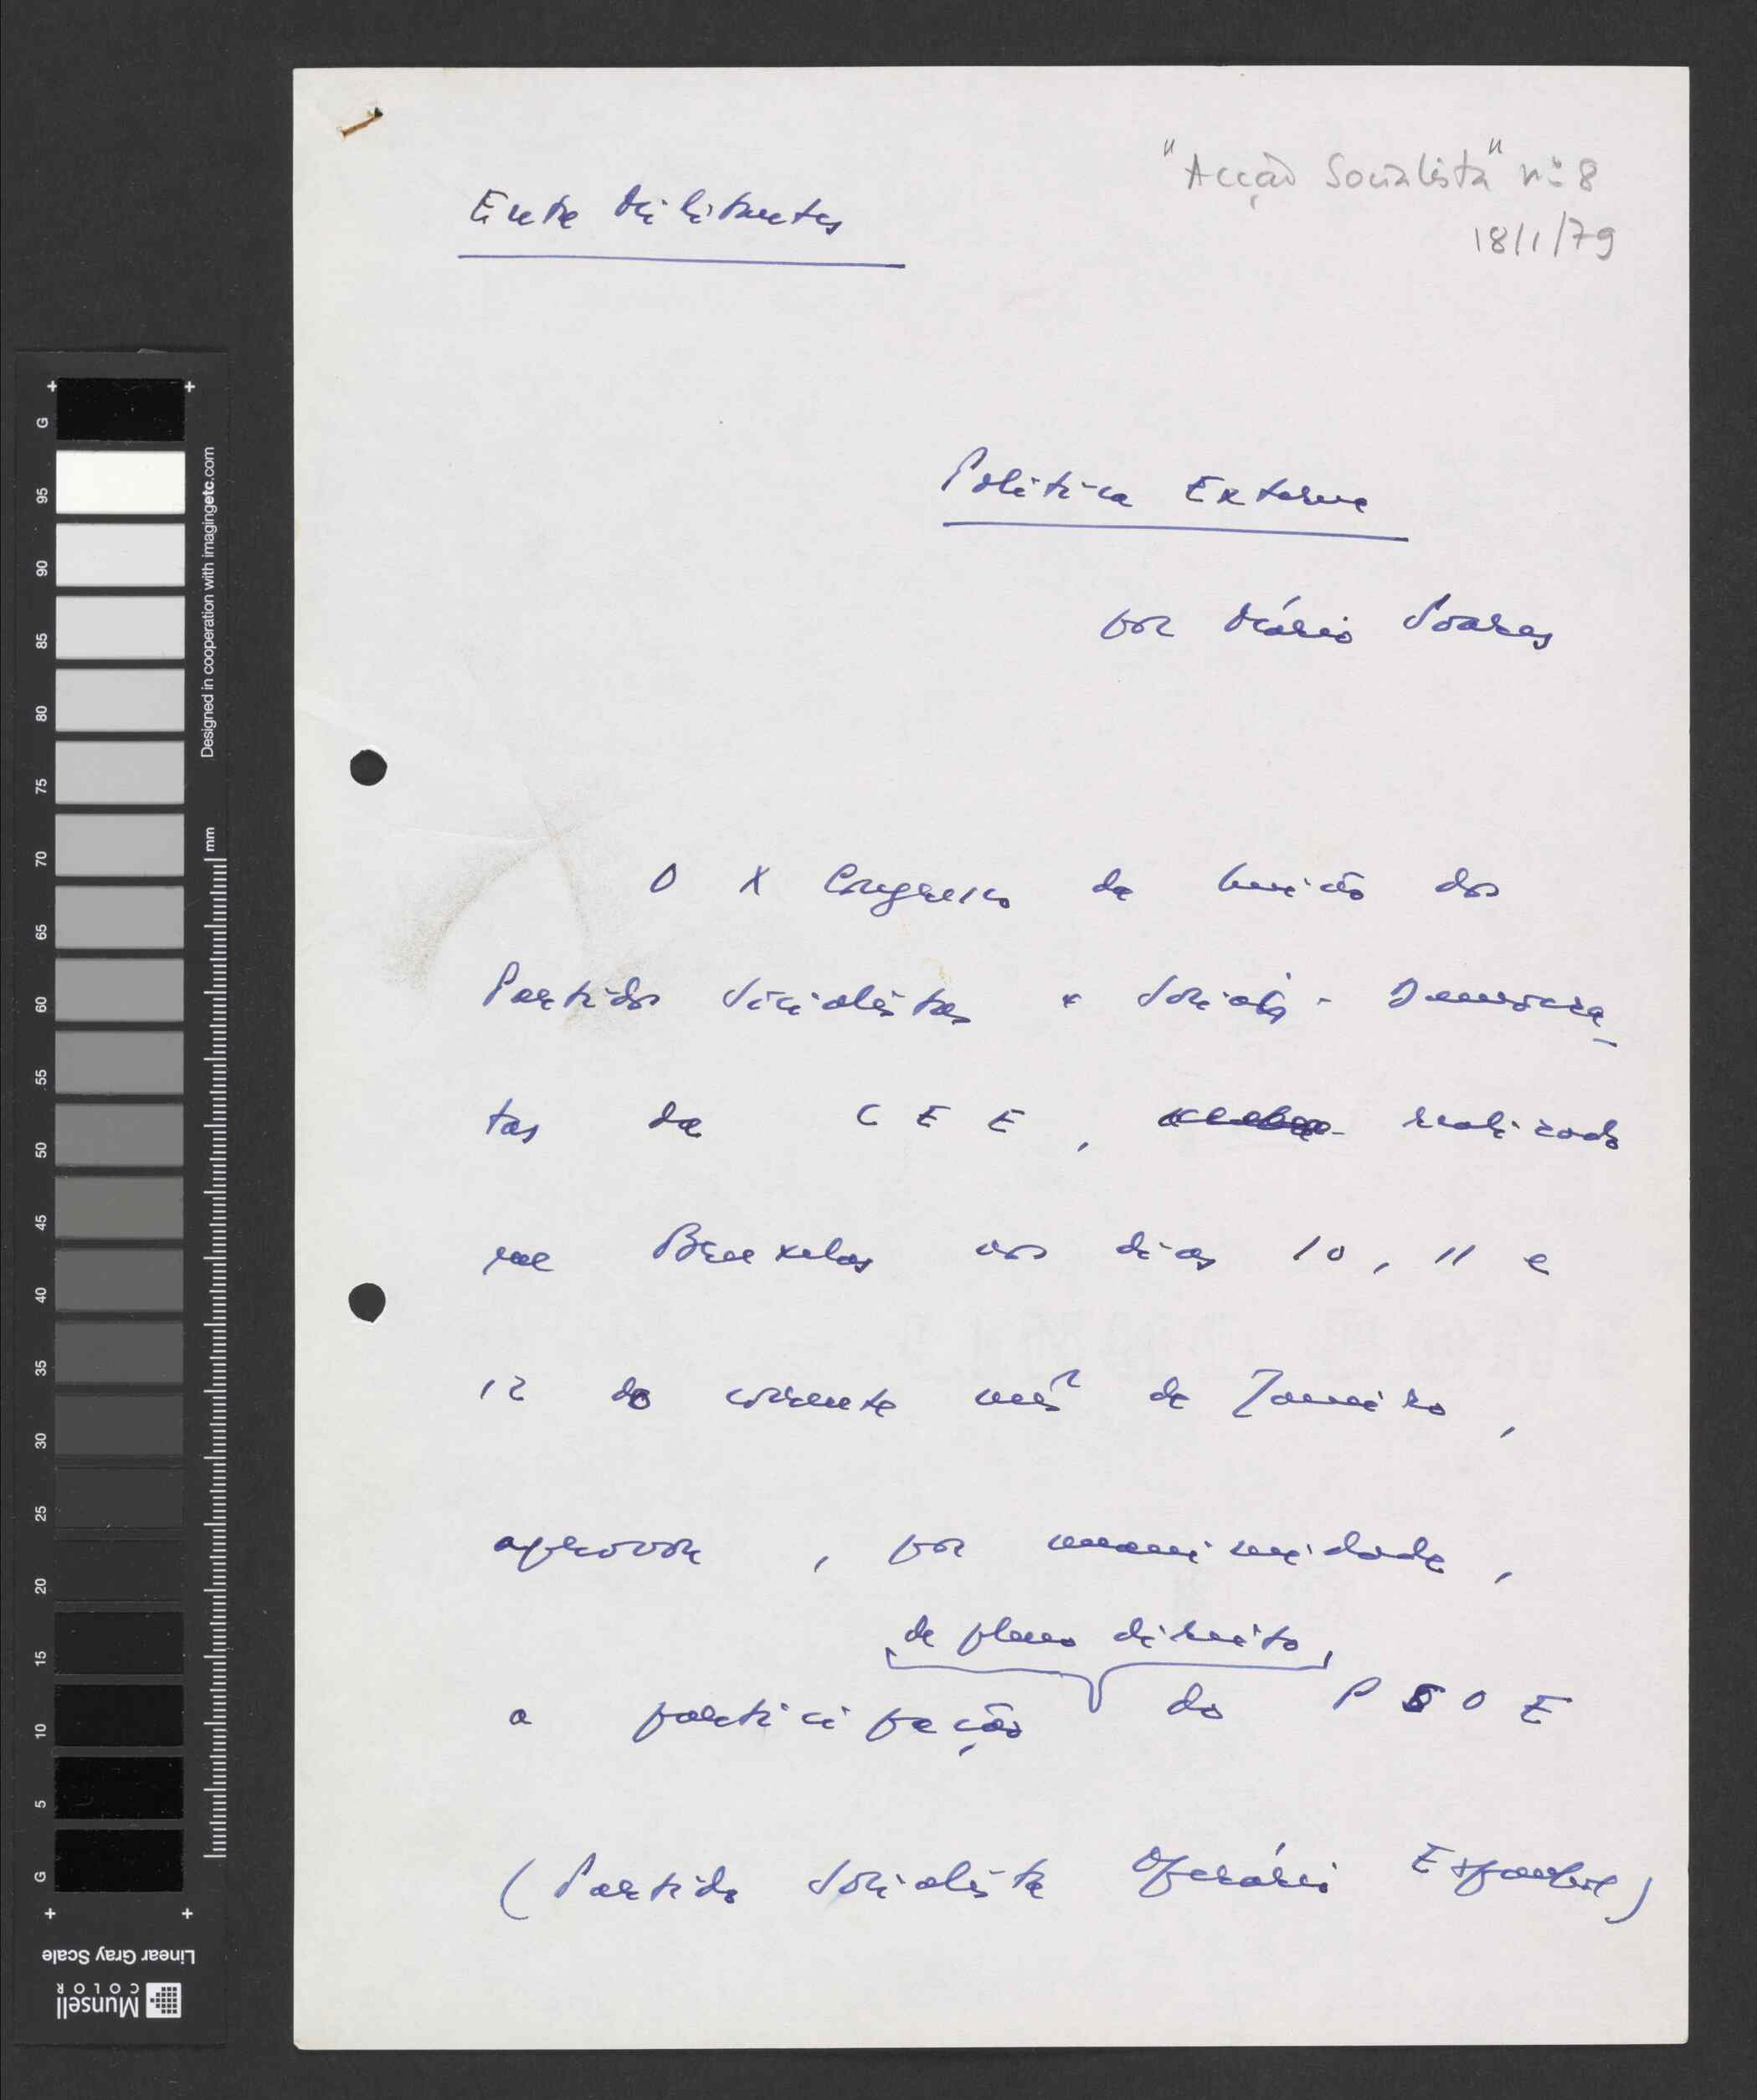 "Acção Socialista" nº 8
18/1/79
Entre Militantes
Política Externa
por Mário Soares
O X Congresso da União dos
Partidos Socialistas e Sociais-Democra-
tas da CEE, realizado
em Bruxelas nos dias 10, 11 e
12 do corrente mês de Janeiro,
aprovou, por unanimidade,
de pleno direito,
a participação do PSOE
(Partido Socialista Operário Espanhol)
G
95
90
85
80
75
70
65
60
55
50
45
40
35
30
25
20
15
10
5
G
Designed in cooperation with imagingetc.com
mm
Linear Gray Scale
Munsell
COLOR